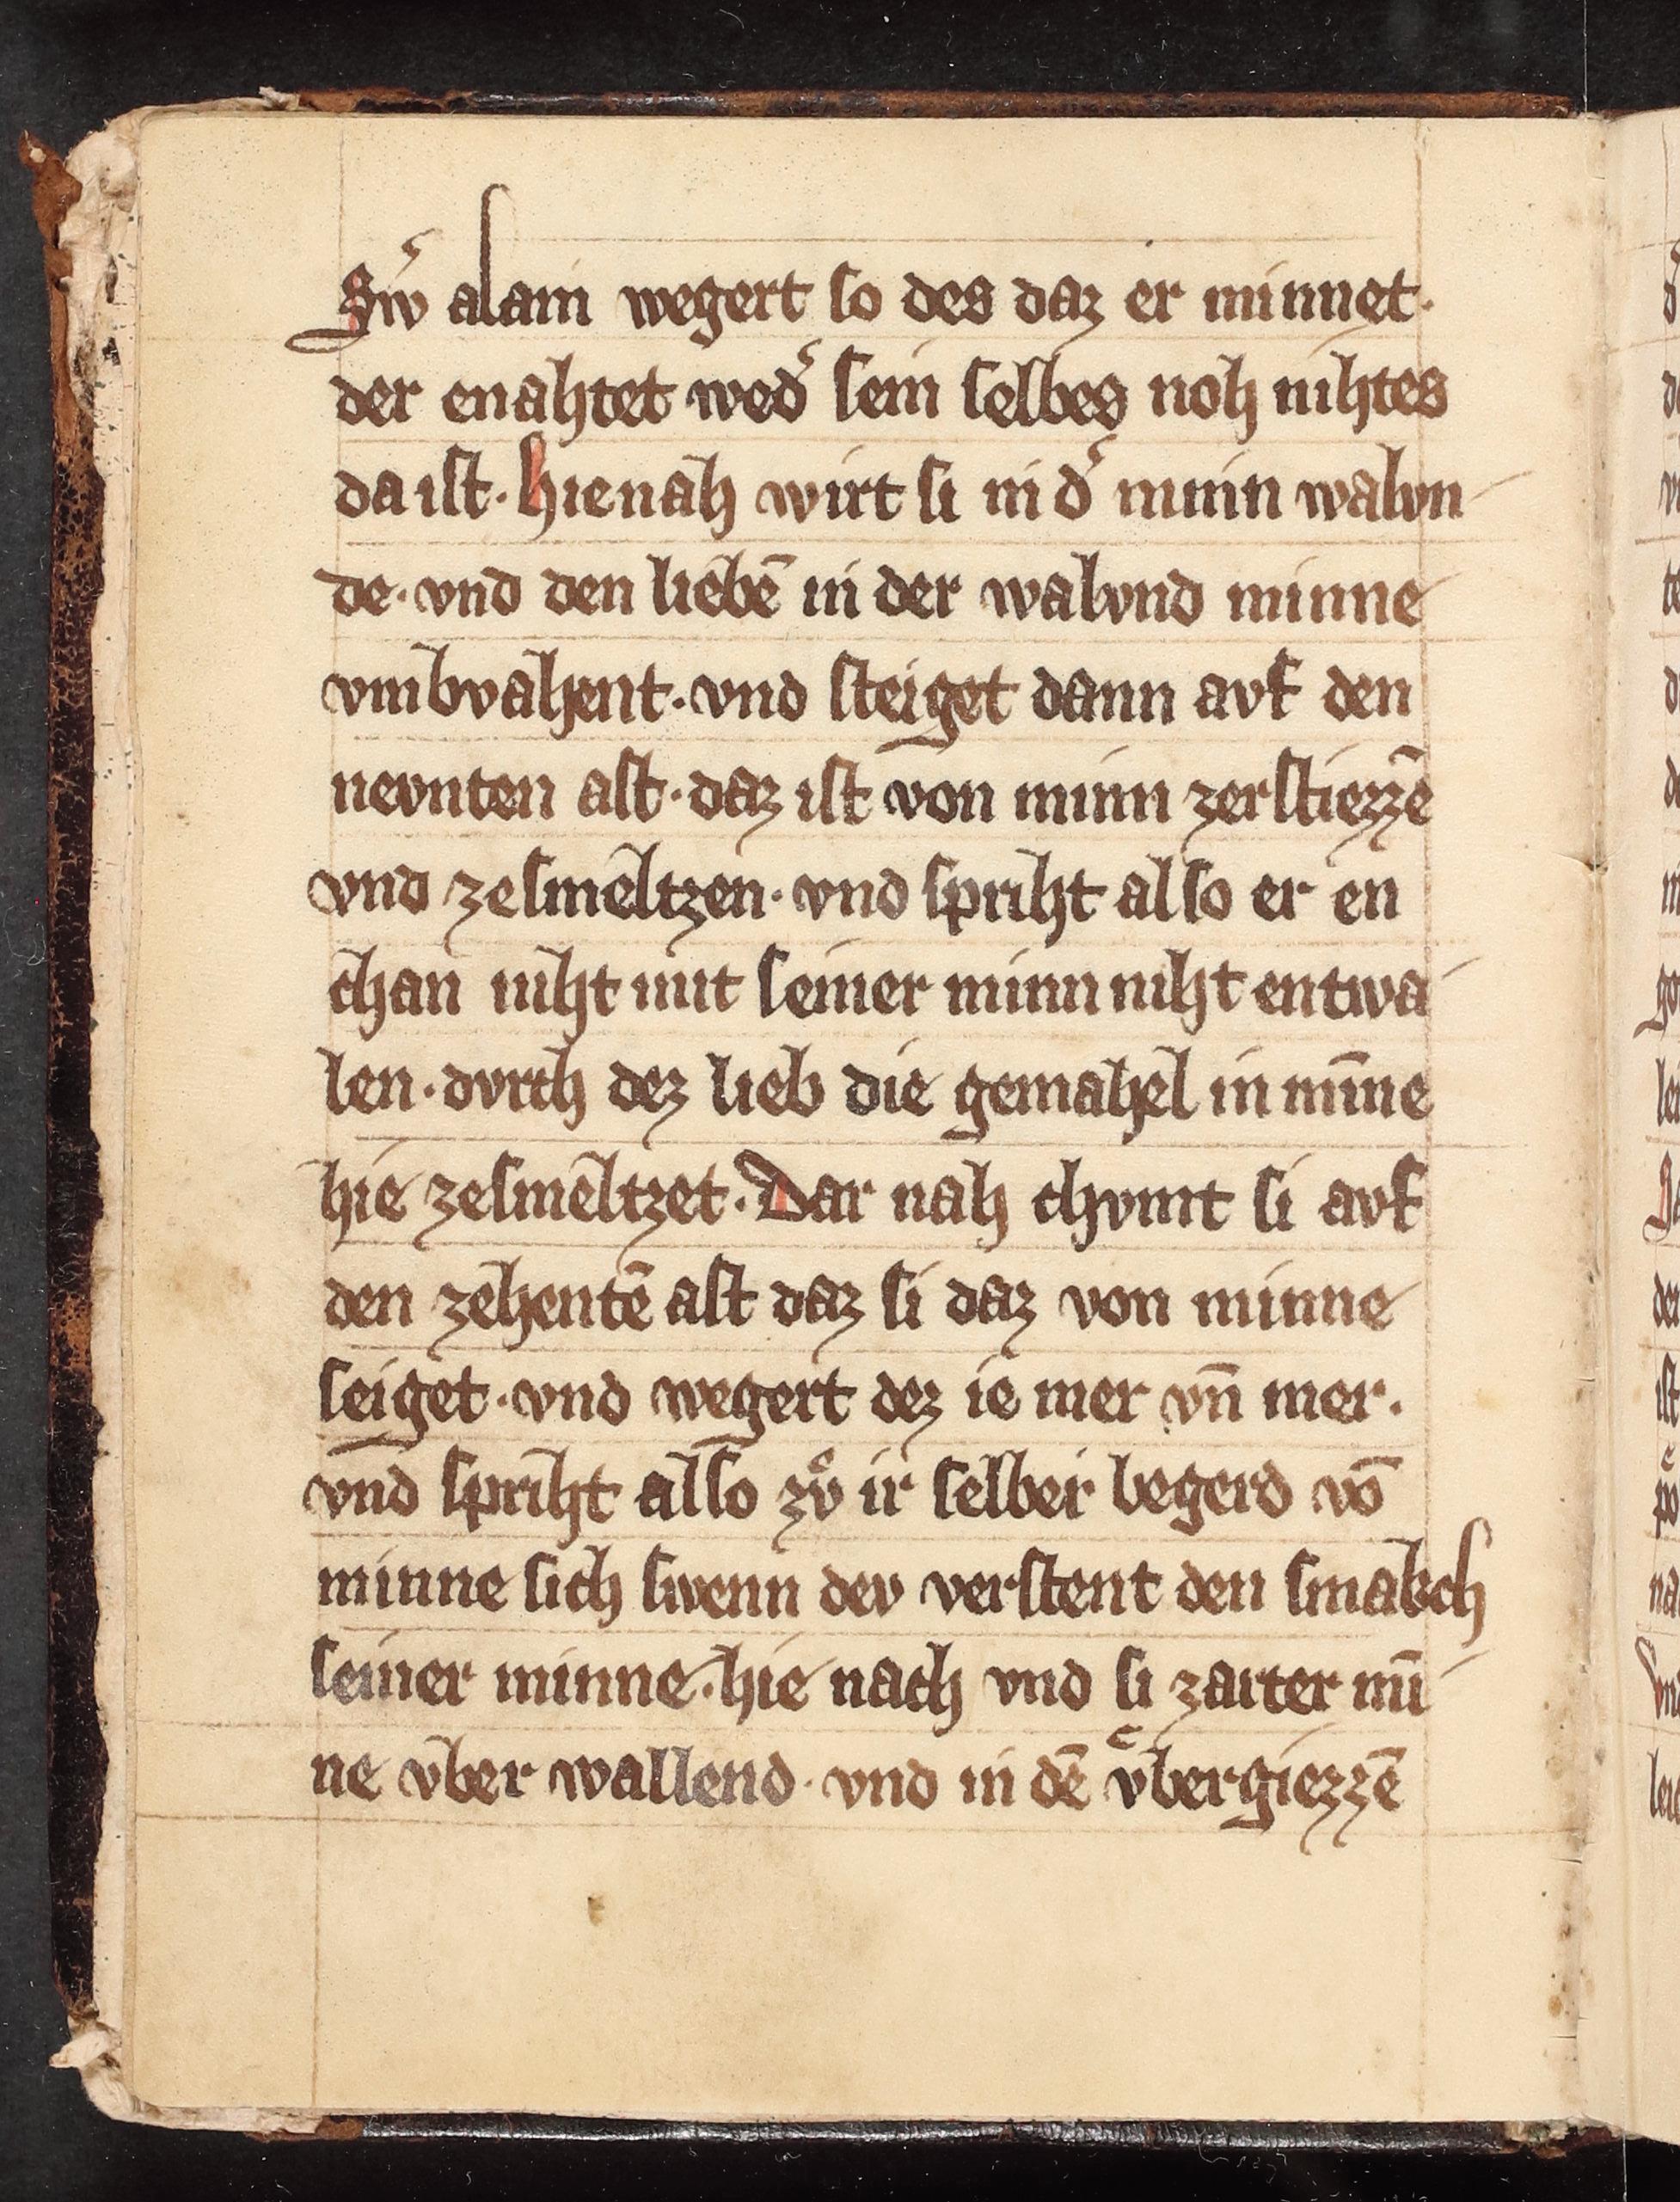 Sw̓ alain wegert so des daz er minnet·
der enahtet wed̓ sein selbes noh nihtes
da ist· hie nah wirt si in d̓ minn walvn
de· vnd den liebē in der walvnd minne
vmbvahent· vnd steiget dann avf den
nevnten ast· daz ist von minn zerfliezzē
vnd zesmeltzen· vnd spriht also er en
chan niht mit seiner minn niht entwa
len· dvrch dez lieb die gemahel in mīne
hie zesmeltzet· Dar nah chvmt si avf
den zehentē ast daz si daz von minne
seiget· vnd wegert dez ie mer vn̄ mer·
vnd spriht also zvͦ ir selber begerd vō
minne sich swenn dev verstent den smakch
seiner minne· hie nach vnd si zarter mī
ne vber wallend· vnd in dē vͤbergiezzē